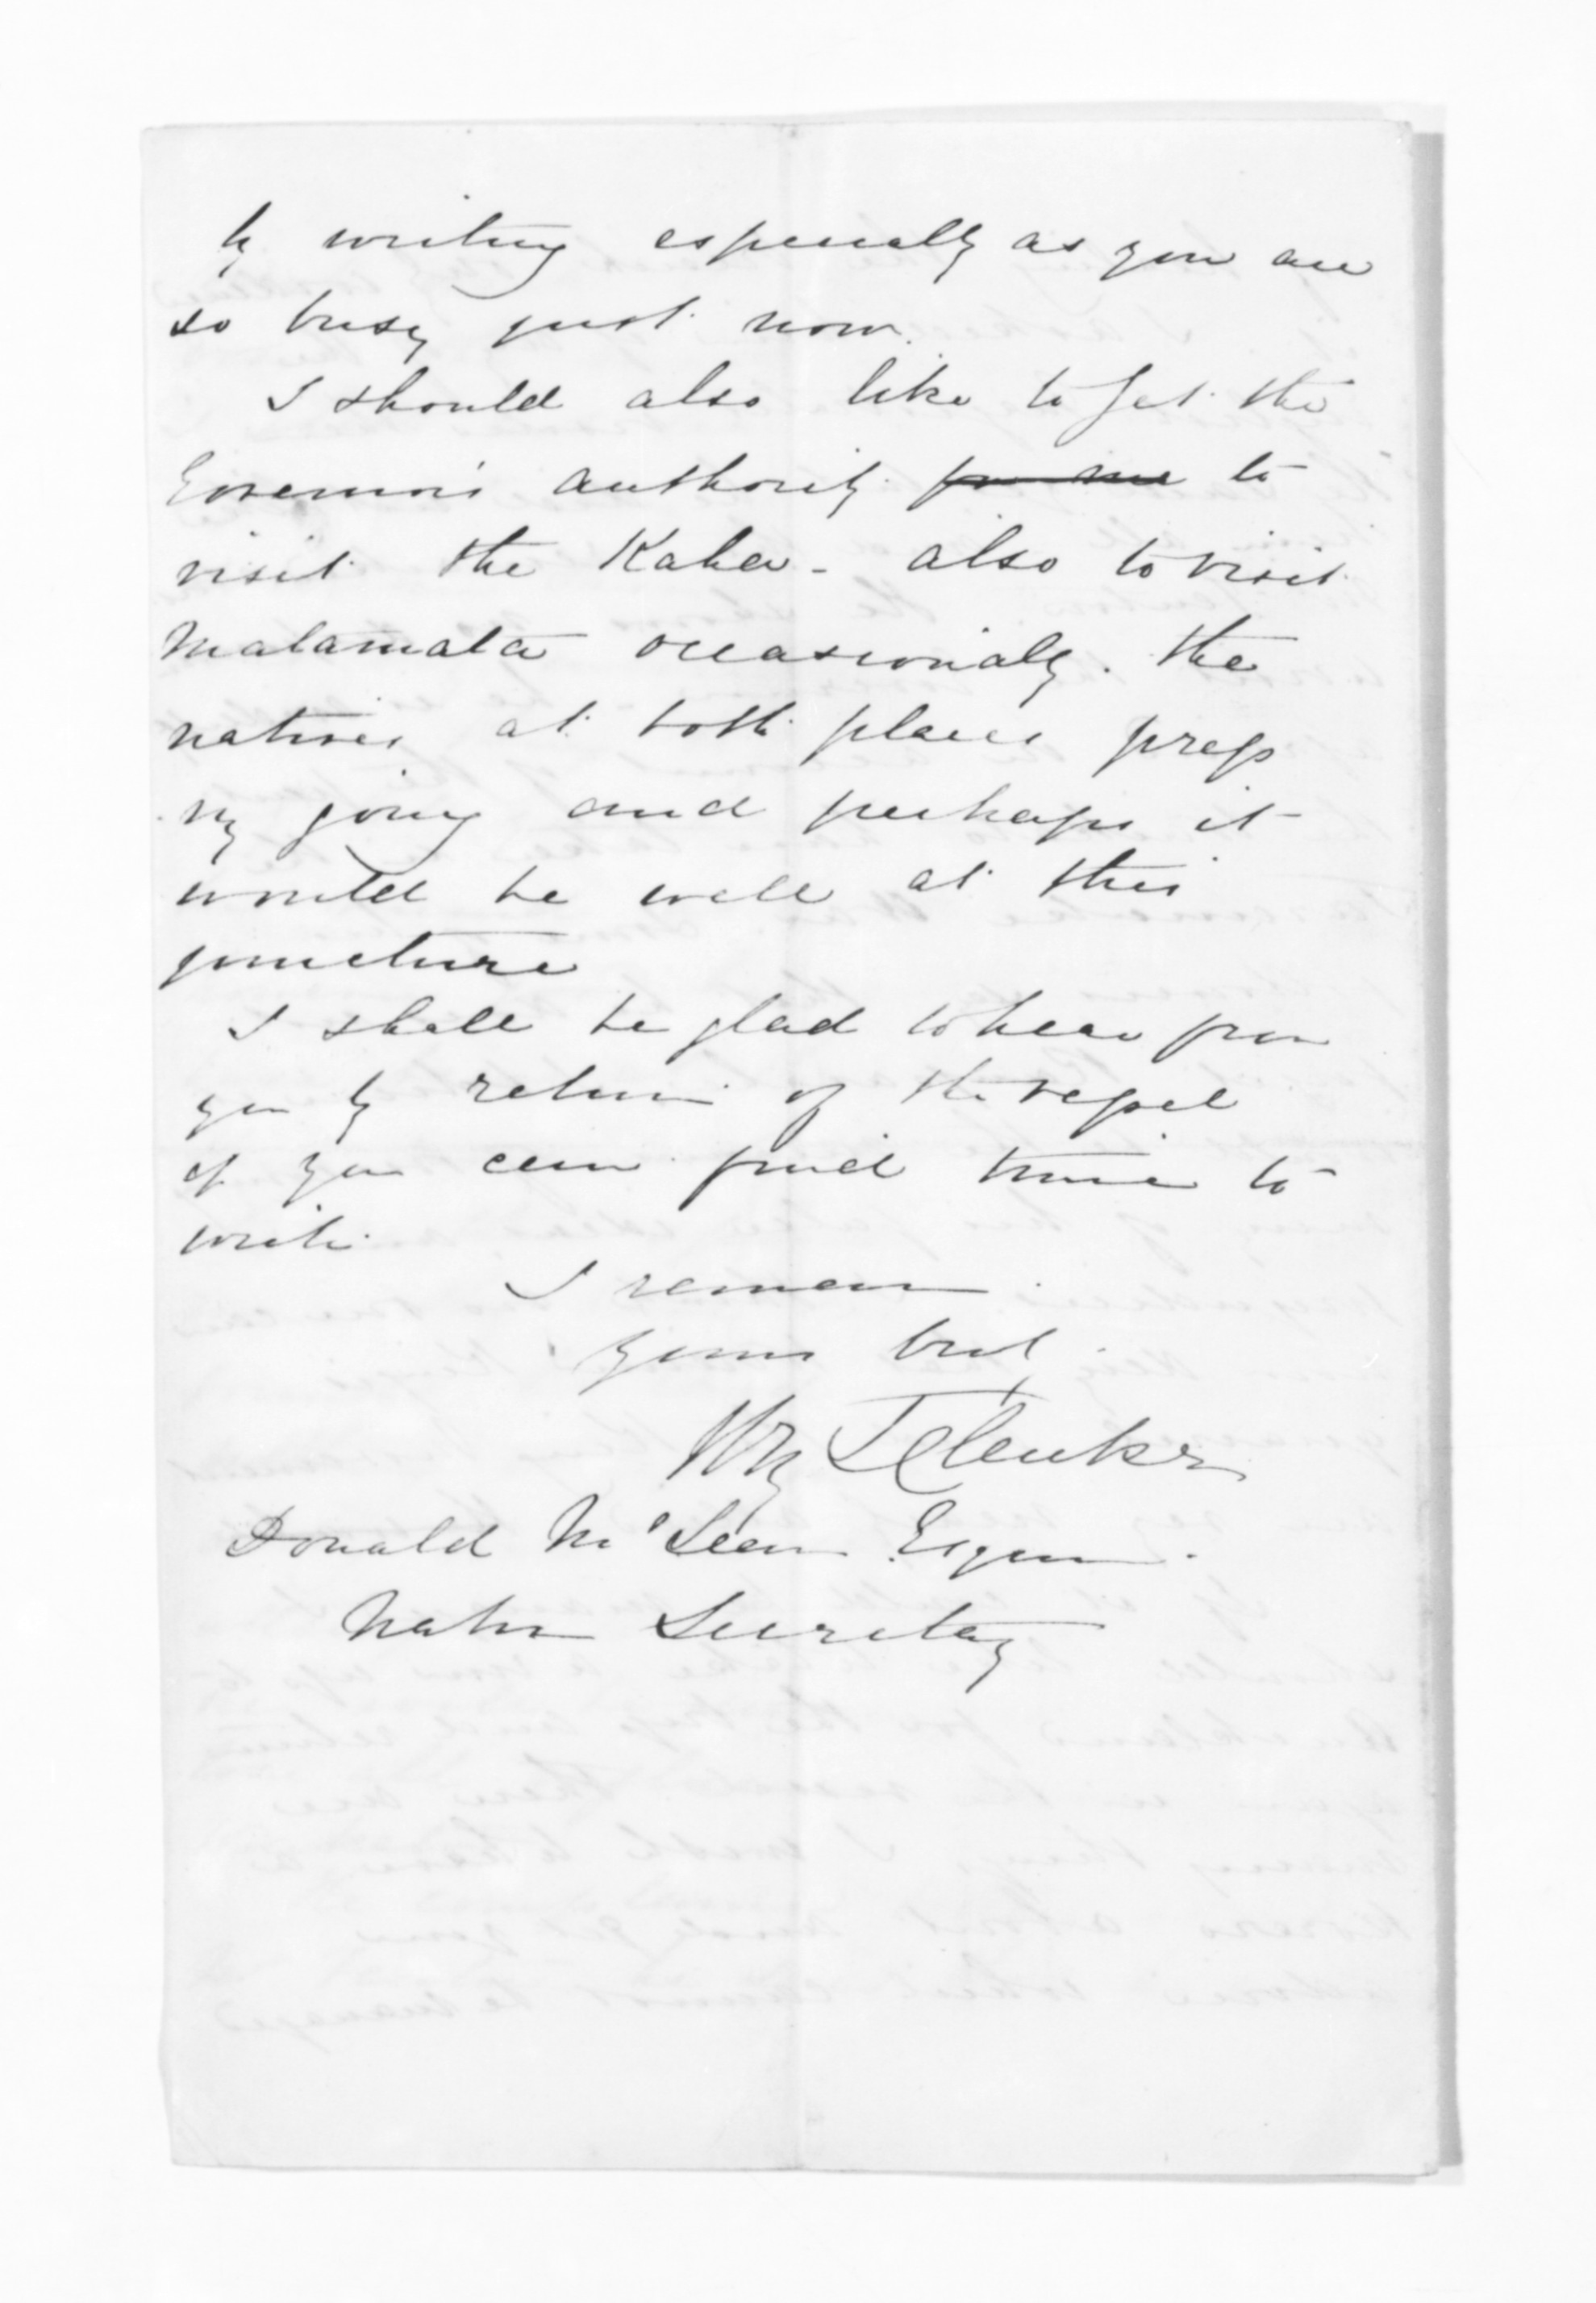 by writing especially as you are
so busy just now.
I should also like to get the
Governor's authority for me to
visit the Kaha - also to visit
Matamata occasionally. The
natives at both places press
my going and perhaps it
would be well at this
juncture
I shall be glad to hear from
you by return of the vessel
if you can find time to
write.
I remain
Yours truly
Hy T Clarke
Donald McLean Esquire.
Native Secretary